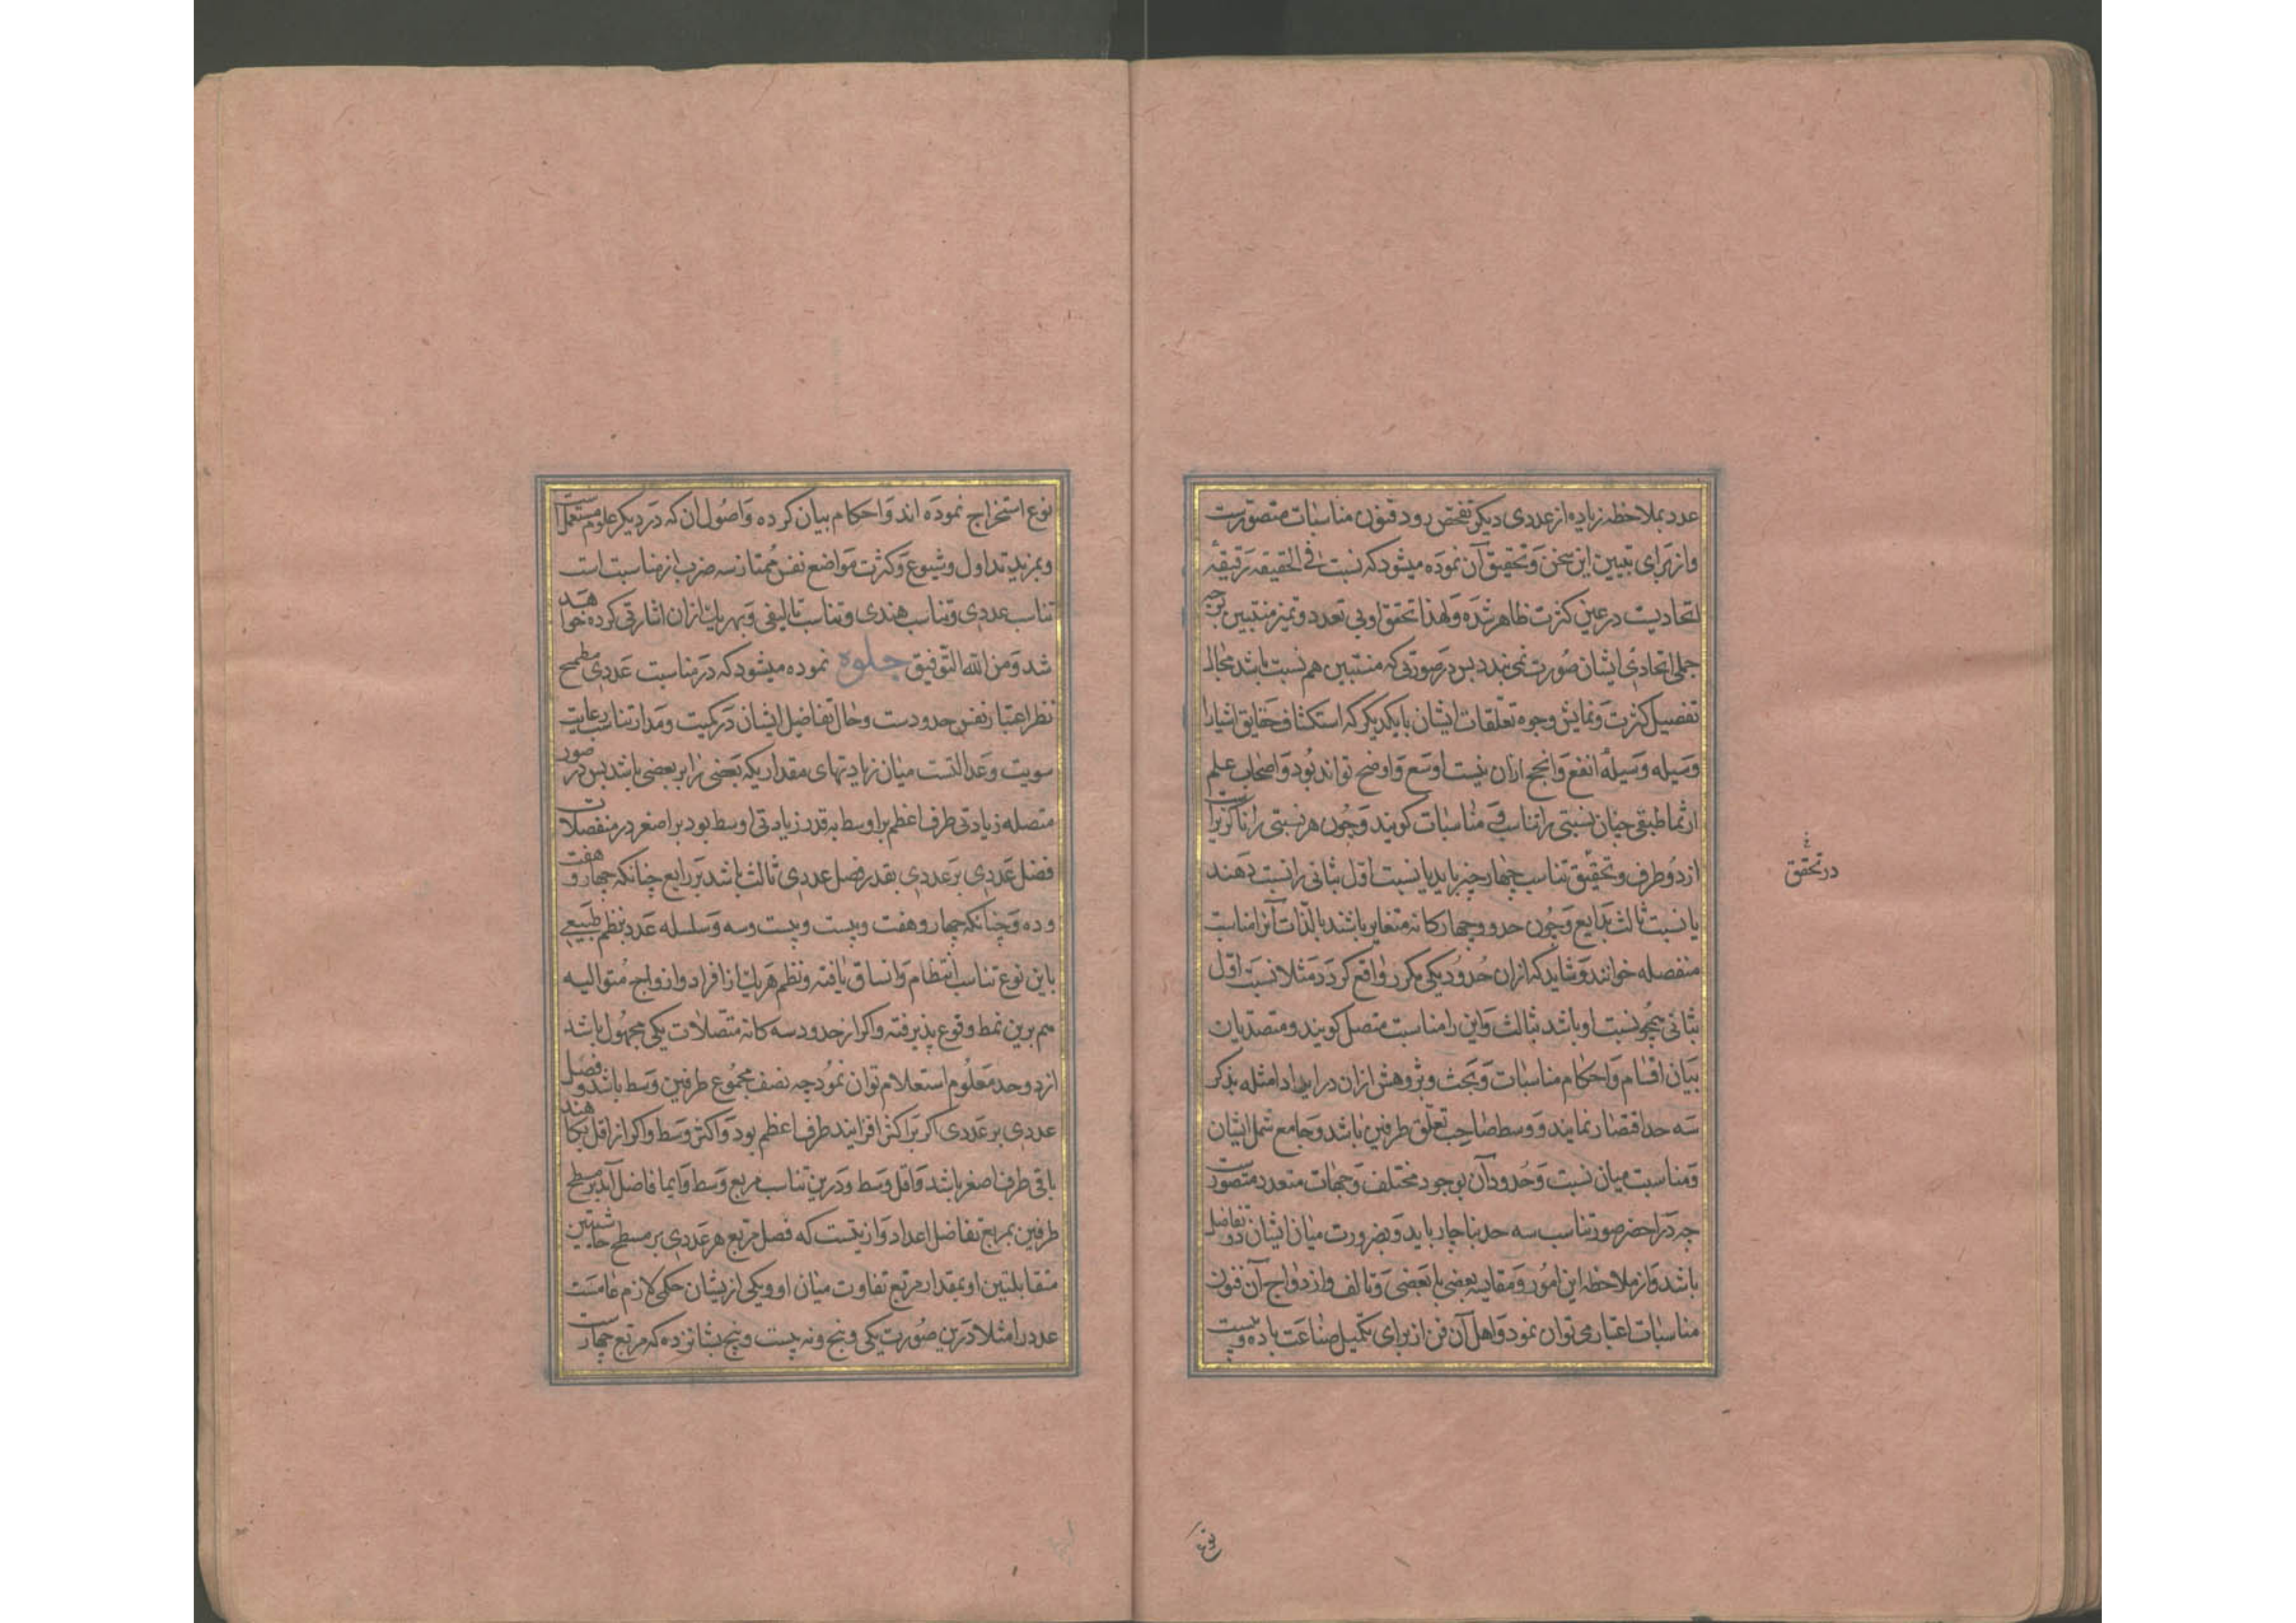 عدد بملاحظه زیاده از عددی دیکر تفحص رود فنون مناسبات متصورست
واز برای تبیین این سخن وتحقیق آن نموده میشود که نسبت فی الحقیقه رقیقهٔ
اتحادیست در عین کثرت ظاهر شده ولهذا تحقق او بی تعدد وتمیز منتسبین بوجه
جملی اتحادی ایشان صورت نمی بندد بس در صورتی که منتسبین هم نسبت باشد مجال
تفصیل کثرت ونمایش وجوه تعلقات ایشان با یکدیکر که استکشاف حقایق اشیا را
وسیله وسیلهٔ انفع وانجح ازان نیست اوسع واوضح تواند بود واصحاب علم
ارثماطیقی چنان نسبتی را تناسب ومناسبات کویند وچون هر نسبتی را ناکزیراست
از دو طرف وتحقیق تناسب چهار چیز باید یا نسبت اول بثانی را نسبت دهند
یا نسبت ثالث برابع وچون حدود چهارکانه متغایر باشند بالذات آنرا مناسبت
منفصله خوانند وشاید که ازان حدود یکی مکرر واقع کردد مثلا نسبت اول
بثانی همچو نسبت او باشد بثالث واین را مناسبت متصل کویند ومتصدیان
بیان اقسام واحکام مناسبات وبحث وپژوهش ازان در ایراد امثله بذکر
سه حد اقتصار نمایند ووسط صاحب تعلق طرفین باشد وجامع شمل ایشان
ومناسبت میان نسبت وحدود آن بوجود مختلف وجهات متعدد متصورست
چه در اخضر صور تناسب سه حد بناچار باید وبضرورت میان ایشان دو تفاضل
باشد واز ملاحظه این امور ومقایسه بعضی با بعضی وتالف وازدواج آن فنون
مناسبات اعتبار می توان نمود واهل آن فن از برای تکمیل صناعت باده وبیست
در تحقق
نوع
نوع استخراج نموده اند واحکام بیان کرده واصول ان که در دیکر علوم مستعملست
وبمزید تداول وشیوع وکثرت مواضع نفس ممتاز سه ضرب از مناسبت است
تناسب عددی وتناسب هندی وتناسب تالیفی وبهر یک ازان اشارتی کرده خواهد
شد ومن الله التوفیق جلوه نموده میشود که در مناسبت عددی مطمح
نظر اعتبار نفس حدودست وحال تفاضل ایشان در کمیت ومدار تناسب رعایت
سویت وعدالتست میان زیادتهای مقداریکه بعضی را بر بعضی باشد بس در صور
متصله زیادتی طرف اعظم بر اوسط بقدر زیادتی اوسط بود بر اصغر در منفصلات
فضل عددی بر عددی بقدر فضل عددی ثالث باشد بر رابع چنانکه چهار و هفت
و ده وچنانکه چهار وهفت وبیست وبیست وسه وسلسله عدد بنظم طبیعی
باین نوع تناسب انتظام واتساق یافته ونظم هر یک از افراد وازواج متوالیه
هم برین نمط وقوع پذیرفته واکر از حدود سه کانه متصلات یکی مجهول باشد
از دو حد معلوم استعلام توان نمود چه نصف مجموع طرفین وسط باشد وفضل
عددی بر عددی اکر بر اکثر افزایند طرف اعظم بود واکثر وسط واکر از اقل بکاهند
باقی طرف اصغر باشد واقل وسط ودرین تناسب مربع وسط دایما فاضل آید بر مسطح
طرفین بمربع تفاضل اعداد وازینست که فضل مربع هر عددی بر مسطح حاشیتین
متقابلتین او بمقدار مربع تفاوت میان او ویکی ازیشان حکمی لازم عامست
عدد را مثلا درین صورت یکی وپنج ونه بیست وپنج بشانزده که مربع چهارست